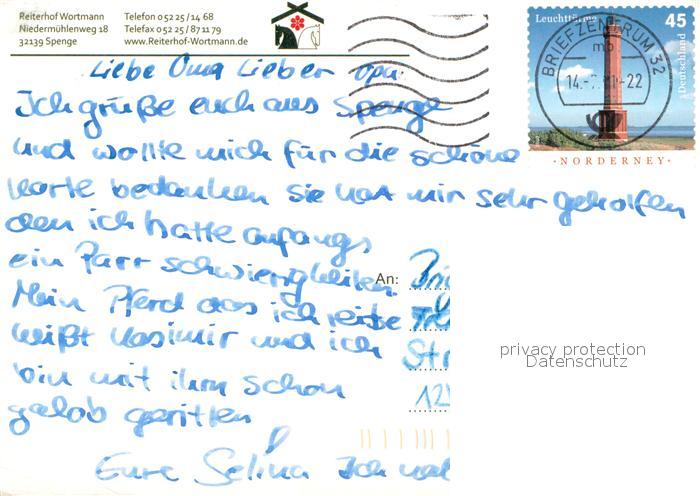 Reiterhof Wortmann
Niedermühlenweg 18
32139 Spenge
Telefon 0 52 25 / 14 68
Telefax 0 52 25 / 87 11 79
www.Reiterhof-Wortmann.de
Leuchttürme
45
Deutschland
NORDERNEY
BRIEFZENTRUM 32
mb
-22
Liebe Oma Lieber Opa
Ich grüße euch aus Spenge
und wollte mich für die schöne
Karte bedanken sie hat mir sehr geholfen
den ich hatte anfangs
ein Parr schwierigkeiten
Mein Pferd das ich reite
heißt Kasimir und ich
bin mit ihm schon
galob geritten
Eure Selina Ich
An:
Str
12
privacy protection
Datenschutz